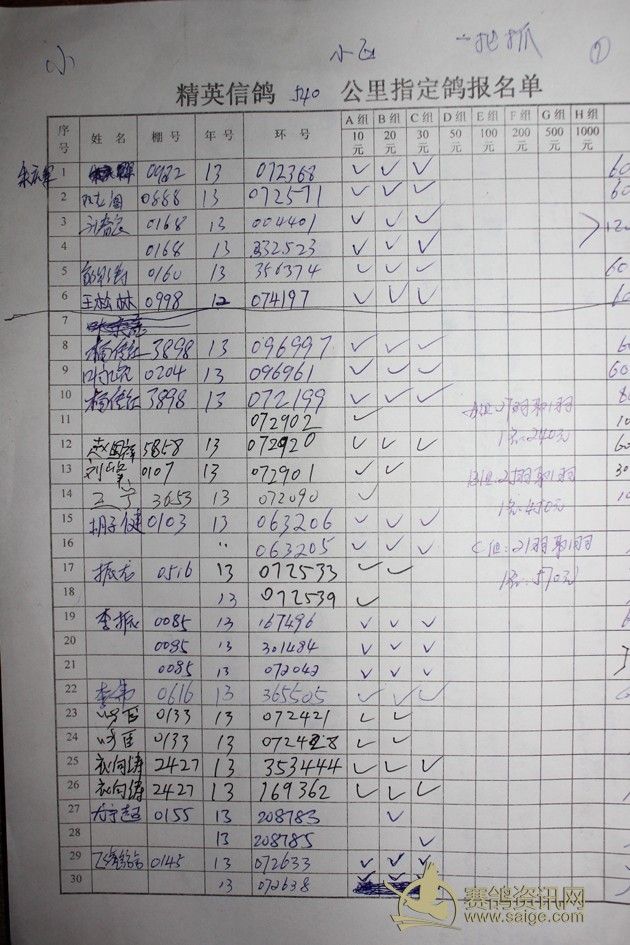 小 小 一把抓 ①
精英信鸽 540 公里指定鸽报名单
序号 姓 名 棚 号 年 号 环 号 A 组 10 元 B 组 20 元 C 组 30 元 D 组 50 元 E 组 100 元 F 组 200 元 G 组 500 元 H 组 1000 元
1 13 072368 ✓ ✓ ✓
2 0888 13 072571 ✓ ✓ ✓
3 0168 13 004401 ✓ ✓ ✓
4 0168 13 332523 ✓ ✓ ✓
5 0160 13 356374 ✓ ✓ ✓
6 王松林 0998 12 074197 ✓ ✓ ✓
7
8 杨 3898 13 096997 ✓ ✓ ✓
9 0204 13 096961 ✓ ✓ ✓
10 杨 3898 13 072199 ✓ ✓ ✓
A组:27羽第1羽
11 072902 ✓
1名:240元
12 5858 13 072920 ✓ ✓ ✓
13 刘 0107 13 072901 ✓ ✓
B组:25羽第1羽
14 王宁 3653 13 072090 ✓
1名:450元
15 胡子健 0103 13 063206 ✓ ✓ ✓
16 〃 063205 ✓ ✓ ✓
C组:21羽第1羽
17 振龙 0516 13 072533 ✓ ✓
1名:570元
18 13 072539 ✓
19 李振 0085 13 167496 ✓ ✓ ✓
20 0085 13 301484 ✓ ✓ ✓
21 0085 13 072042 ✓ ✓ ✓
22 李伟 0616 13 365505 ✓ ✓ ✓
23 0133 13 072421 ✓ ✓
24 0133 13 072428 ✓ ✓
25 衣向涛 2427 13 353444 ✓ ✓ ✓
26 衣向涛 2427 13 169362 ✓ ✓ ✓
27 0155 13 208783 ✓
28 13 208785 ✓
29 0145 13 072633 ✓ ✓ ✓
30 13 072638
赛鸽资讯网
www.saige.com